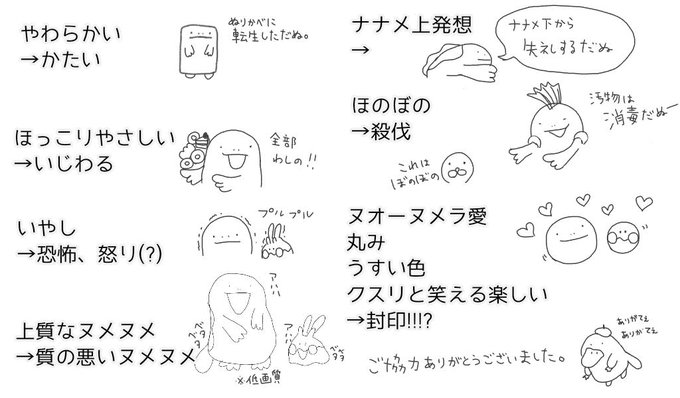 やわらかい
→かたい
ぬりかべに
転生しただぬ。
ほっこりやさしい
→いじわる
全部
わしの!!
いやし
→恐怖、怒り(?)
プルプル
上質なヌメヌメ
→質の悪いヌメヌメ
アハハ
アハハ
ベタベタ
ベタベタ
※低画質
ナナメ上発想
→
ナナメ下から
失礼するだぬ
ほのぼの
→殺伐
汚物は
消毒だぬー
これは
ぼのぼの
ヌオーヌメラ愛
丸み
うすい色
クスリと笑える楽しい
→封印!!!?
ありがてぇ
ありがてぇ
ご協力ありがとうございました。